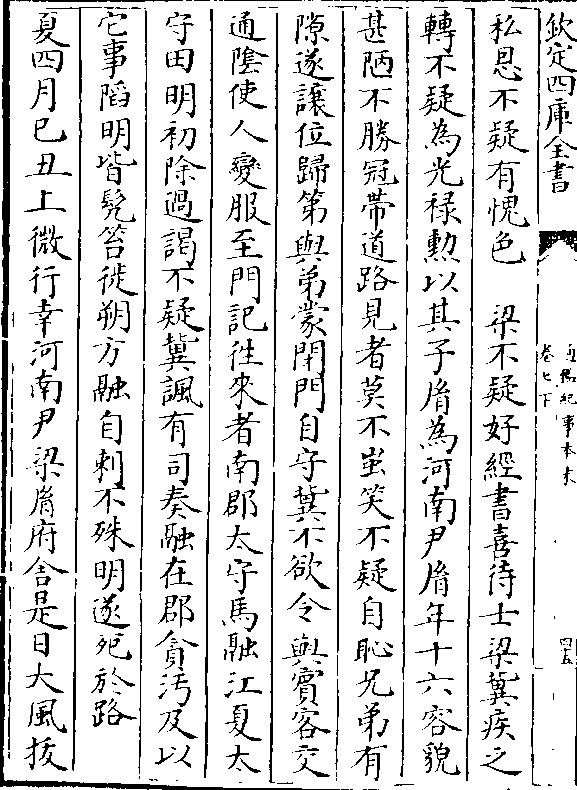 欽定四庫全書
通鑑紀事本末
卷七下
四五
私恩不疑有愧色　梁不疑好經書喜待士梁冀疾之
轉不疑為光禄勲以其子胤為河南尹胤年十六容貌
甚陋不勝冠帶道路見者莫不蚩笑不疑自恥兄弟有
隙遂讓位歸第與弟蒙閉門自守冀不欲令與賓客交
通隂使人變服至門記往來者南郡太守馬融江夏太
守田明初除過謁不疑冀諷有司奏融在郡貪汚及以
它事陷明皆髠笞徙朔方融自刺不殊明遂死於路
夏四月己丑上微行幸河南尹梁胤府舍是日大風拔